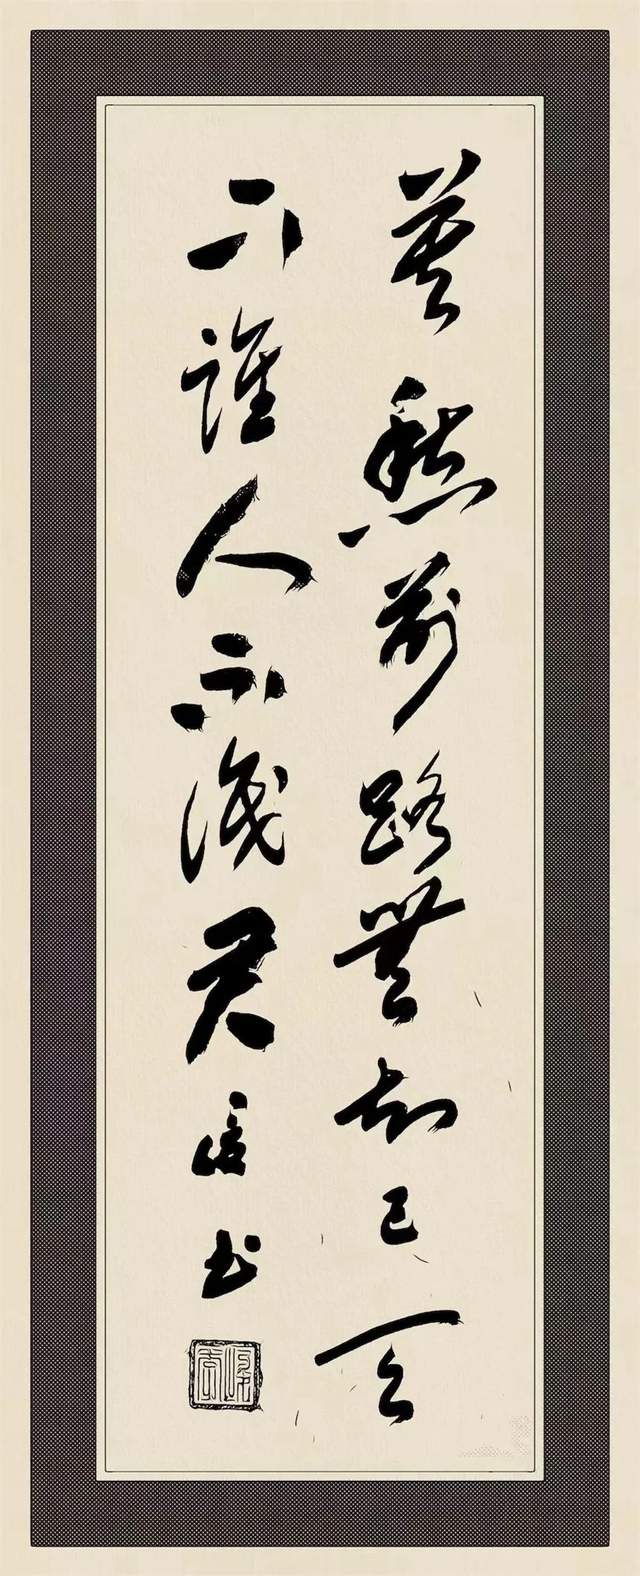 莫愁前路無知己天
下誰人不識君 书